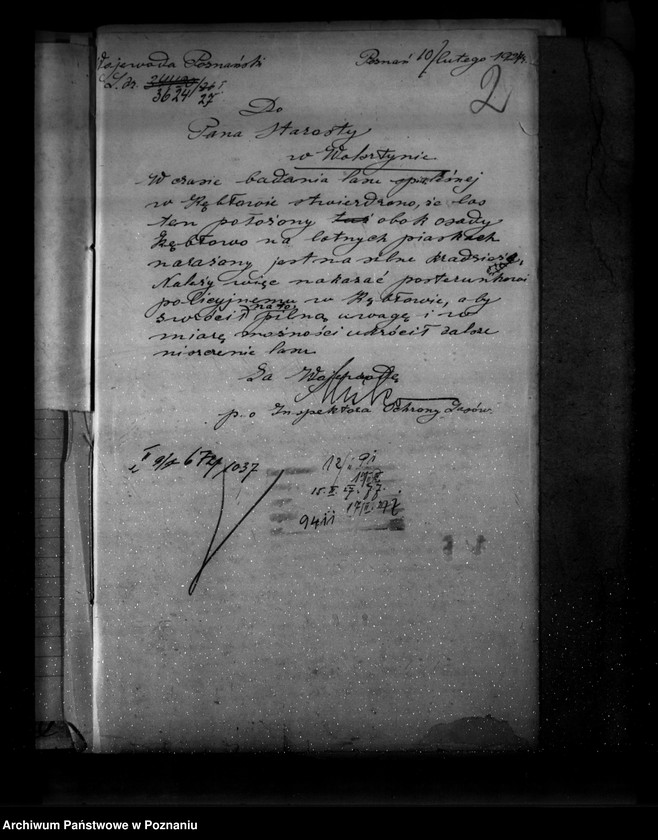 Wojewoda Poznański Poznań 10/lutego 192
L. dz. 3624/27 2
Do
Pana Starosty
w Wolsztynie
W czasie badania lasu spółnej
w Kębłowie stwierdzono, że las
ten położony tuż obok osady
Kębłowo na lotnych piaskach
narażony jest na silne kradzieże.
Należy więc nakazać posterunkowi
policyjnemu w Kębłowie, aby
zwrócił na to pilną uwagę i w
miarę możności ukrócił dalsze
niszczenie lasu
Za Wojewodę
p. o Inspektora Ochrony Lasów.
1037
94
Archiwum Państwowe w Poznaniu